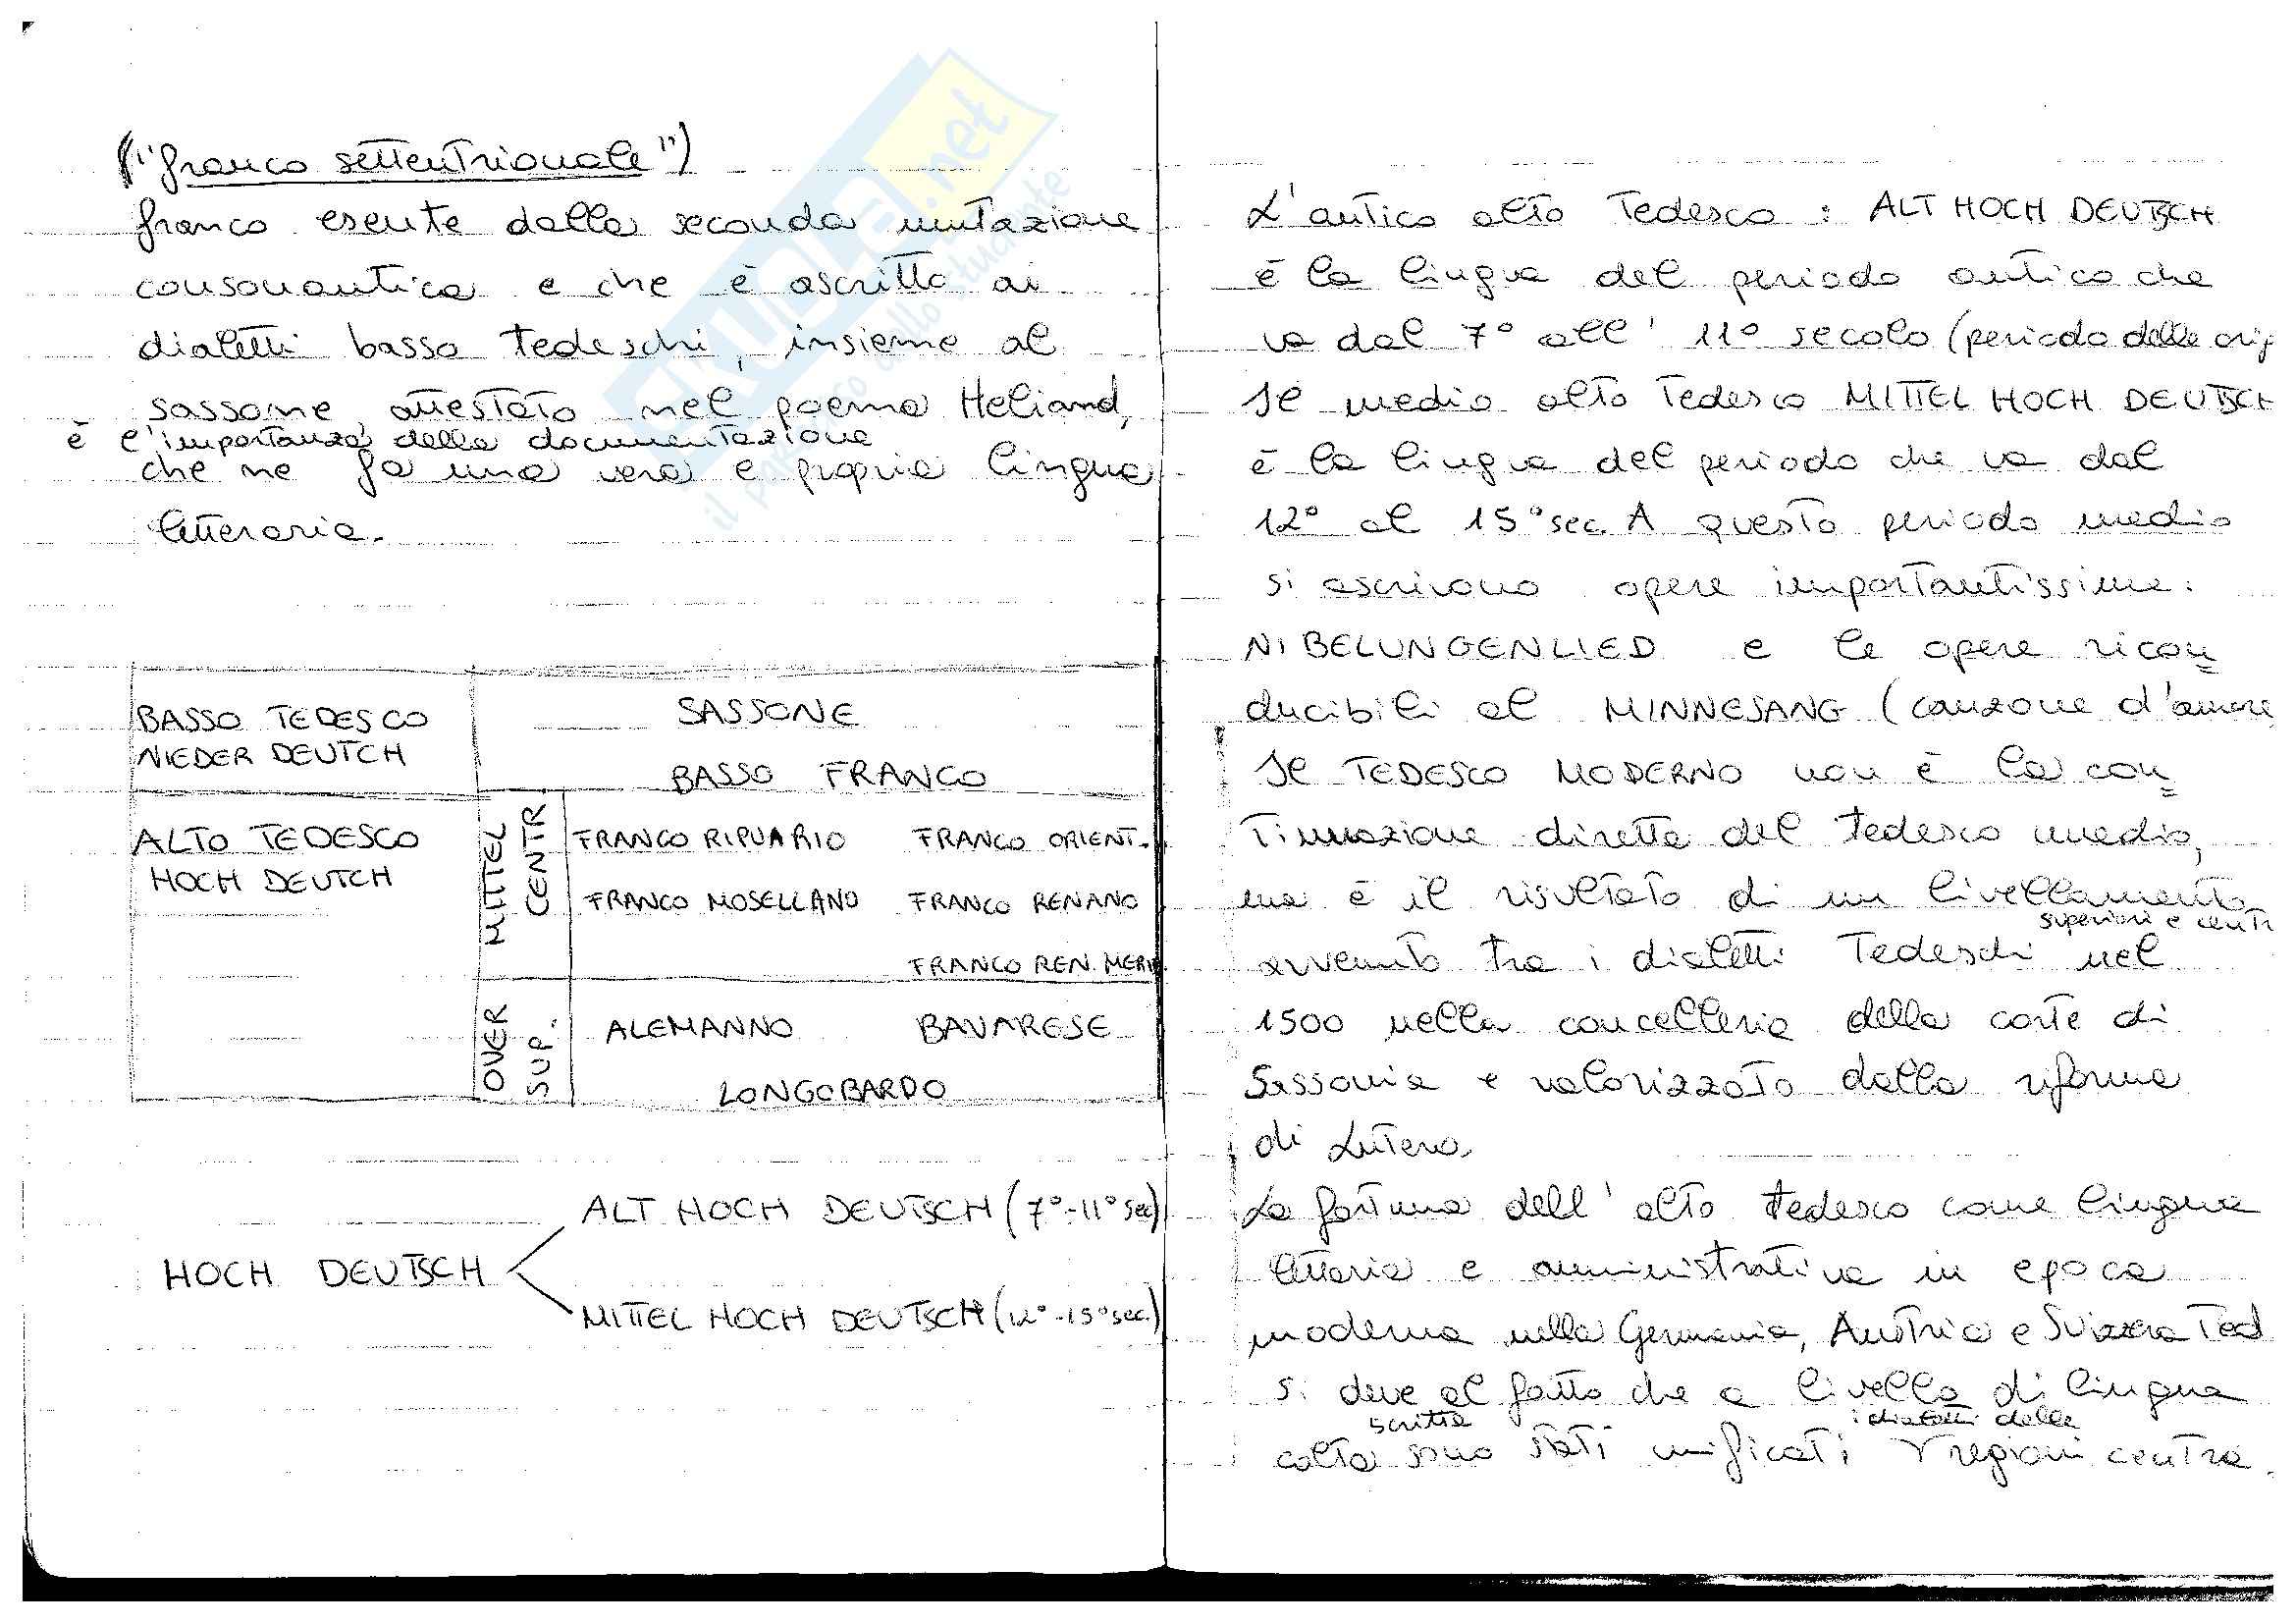 ("franco settentrionale")
franco esente dalla seconda mutazione
consonantica e che è ascritto ai
dialetti basso tedeschi, insieme al
sassone, attestato nel poema Heliand,
è l'importanza della documentazione
che ne fa una vera e propria lingua
letteraria.
BASSO TEDESCO
NIEDER DEUTCH
SASSONE
BASSO FRANCO
ALTO TEDESCO
HOCH DEUTCH
MITTEL
CENTR.
FRANCO RIPUARIO FRANCO ORIENT.
FRANCO MOSELLANO FRANCO RENANO
FRANCO REN. MERID.
OVER
SUP.
ALEMANNO BAVARESE
LONGOBARDO
HOCH DEUTSCH
ALT HOCH DEUTSCH (7°-11° sec)
MITTEL HOCH DEUTSCH (12°-15° sec.)
L'antico alto tedesco : ALT HOCH DEUTSCH
è la lingua del periodo antico che
va dal 7° all' 11° secolo (periodo delle orig
Il medio alto tedesco MITTEL HOCH DEUTSCH
è la lingua del periodo che va dal
12° al 15° sec. A questo periodo medio
si ascrivono opere importantissime:
NIBELUNGENLIED e le opere ricon
ducibili al MINNESANG (canzone d'amore
Il TEDESCO MODERNO non è la con
tinuazione diretta del tedesco medio,
ma è il risultato di un livellamento
superiori e centr
avvenuto tra i dialetti tedeschi nel
1500 nella cancelleria della corte di
Sassonia e valorizzato dalla riforma
di Lutero.
La fortuna dell' alto tedesco come lingua
letteraria e amministrativa in epoca
moderna nella Germania, Austria e Svizzera Ted
si deve al fatto che a livello di lingua
scritta i dialetti delle
colta sono stati unificati regioni centra